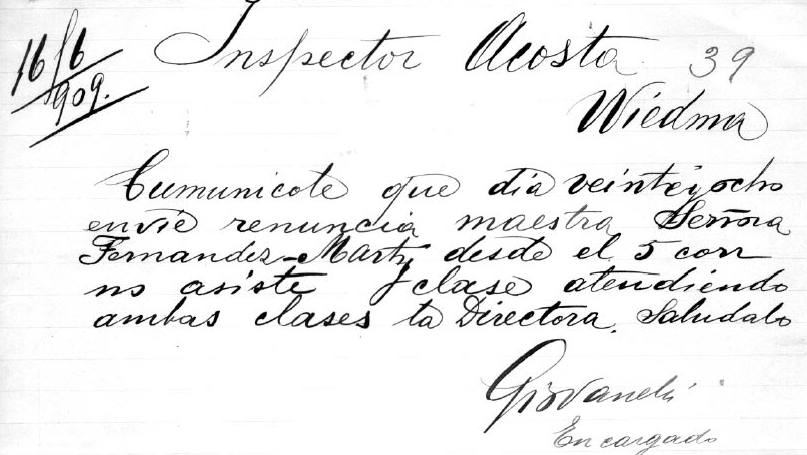 16/6
909.
Inspector Acosta 39
Wiedma
Cumunicote que dia veinteyocho
envié renuncia maestra Señora
Fernandez-Marti desde el 5 corr
no asiste clase atendiendo
ambas clases la Directora. Saludalo
Giovanelli
Encargado